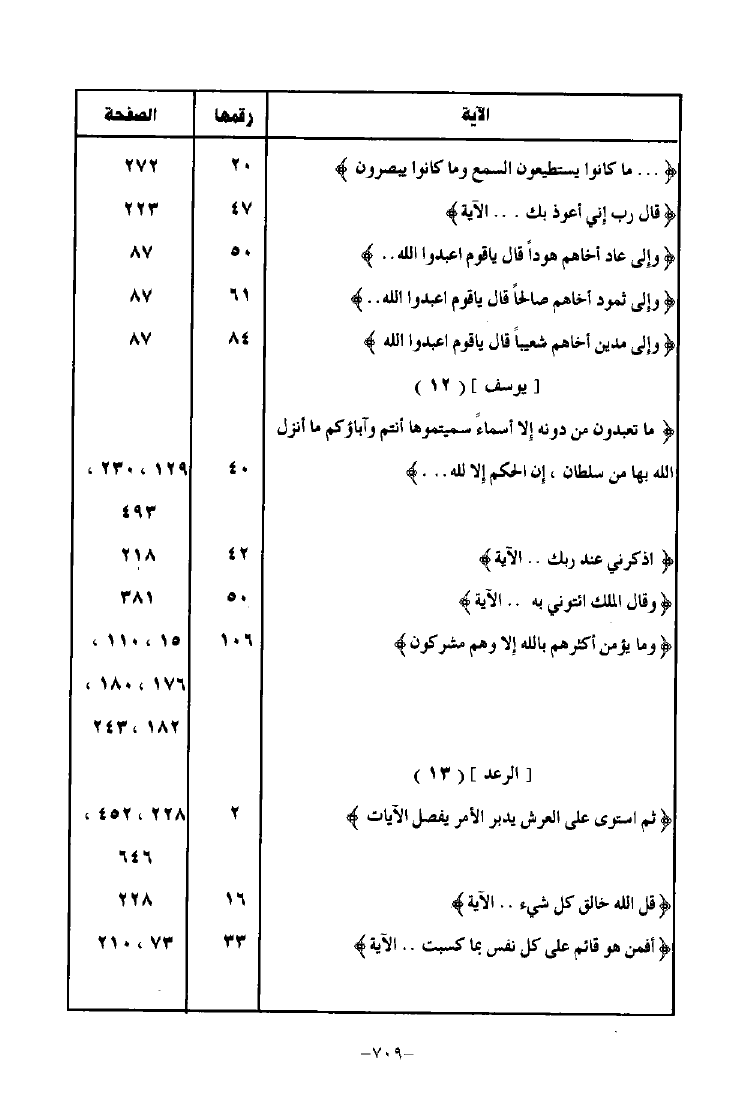 الآية رقمها الصفحة
﴿ ... ما كانوا يستطيعون السمع وما كانوا يبصرون ﴾ ٢٠ ٢٧٢
﴿ قال رب إني أعوذ بك ... الآية ﴾ ٤٧ ٢٢٣
﴿ وإلى عاد أخاهم هوداً قال ياقوم اعبدوا الله .. ﴾ ٥٠ ٨٧
﴿ وإلى ثمود أخاهم صالحاً قال ياقوم اعبدوا الله .. ﴾ ٦١ ٨٧
﴿ وإلى مدين أخاهم شعيباً قال ياقوم اعبدوا الله ﴾ ٨٤ ٨٧
[ يوسف ] ( ١٢ )
﴿ ما تعبدون من دونه إلا أسماءً سميتموها أنتم وآباؤكم ما أنزل
الله بها من سلطان ، إن الحكم إلا لله ... ﴾ ٤٠ ١٢٩ ، ٢٣٠ ،
٤٩٣
﴿ اذكرني عند ربك .. الآية ﴾ ٤٢ ٢١٨
﴿ وقال الملك ائتوني به .. الآية ﴾ ٥٠ ٣٨١
﴿ وما يؤمن أكثرهم بالله إلا وهم مشركون ﴾ ١٠٦ ١٥ ، ١١٠ ،
١٧٦ ، ١٨٠ ،
١٨٢ ، ٢٤٣
[ الرعد ] ( ١٣ )
﴿ ثم استوى على العرش يدبر الأمر يفصل الآيات ﴾ ٢ ٢٢٨ ، ٤٥٢ ،
٦٤٦
﴿ قل الله خالق كل شيء .. الآية ﴾ ١٦ ٢٢٨
﴿ أفمن هو قائم على كل نفس بما كسبت .. الآية ﴾ ٣٣ ٧٣ ، ٢١٠
–٧٠٩–